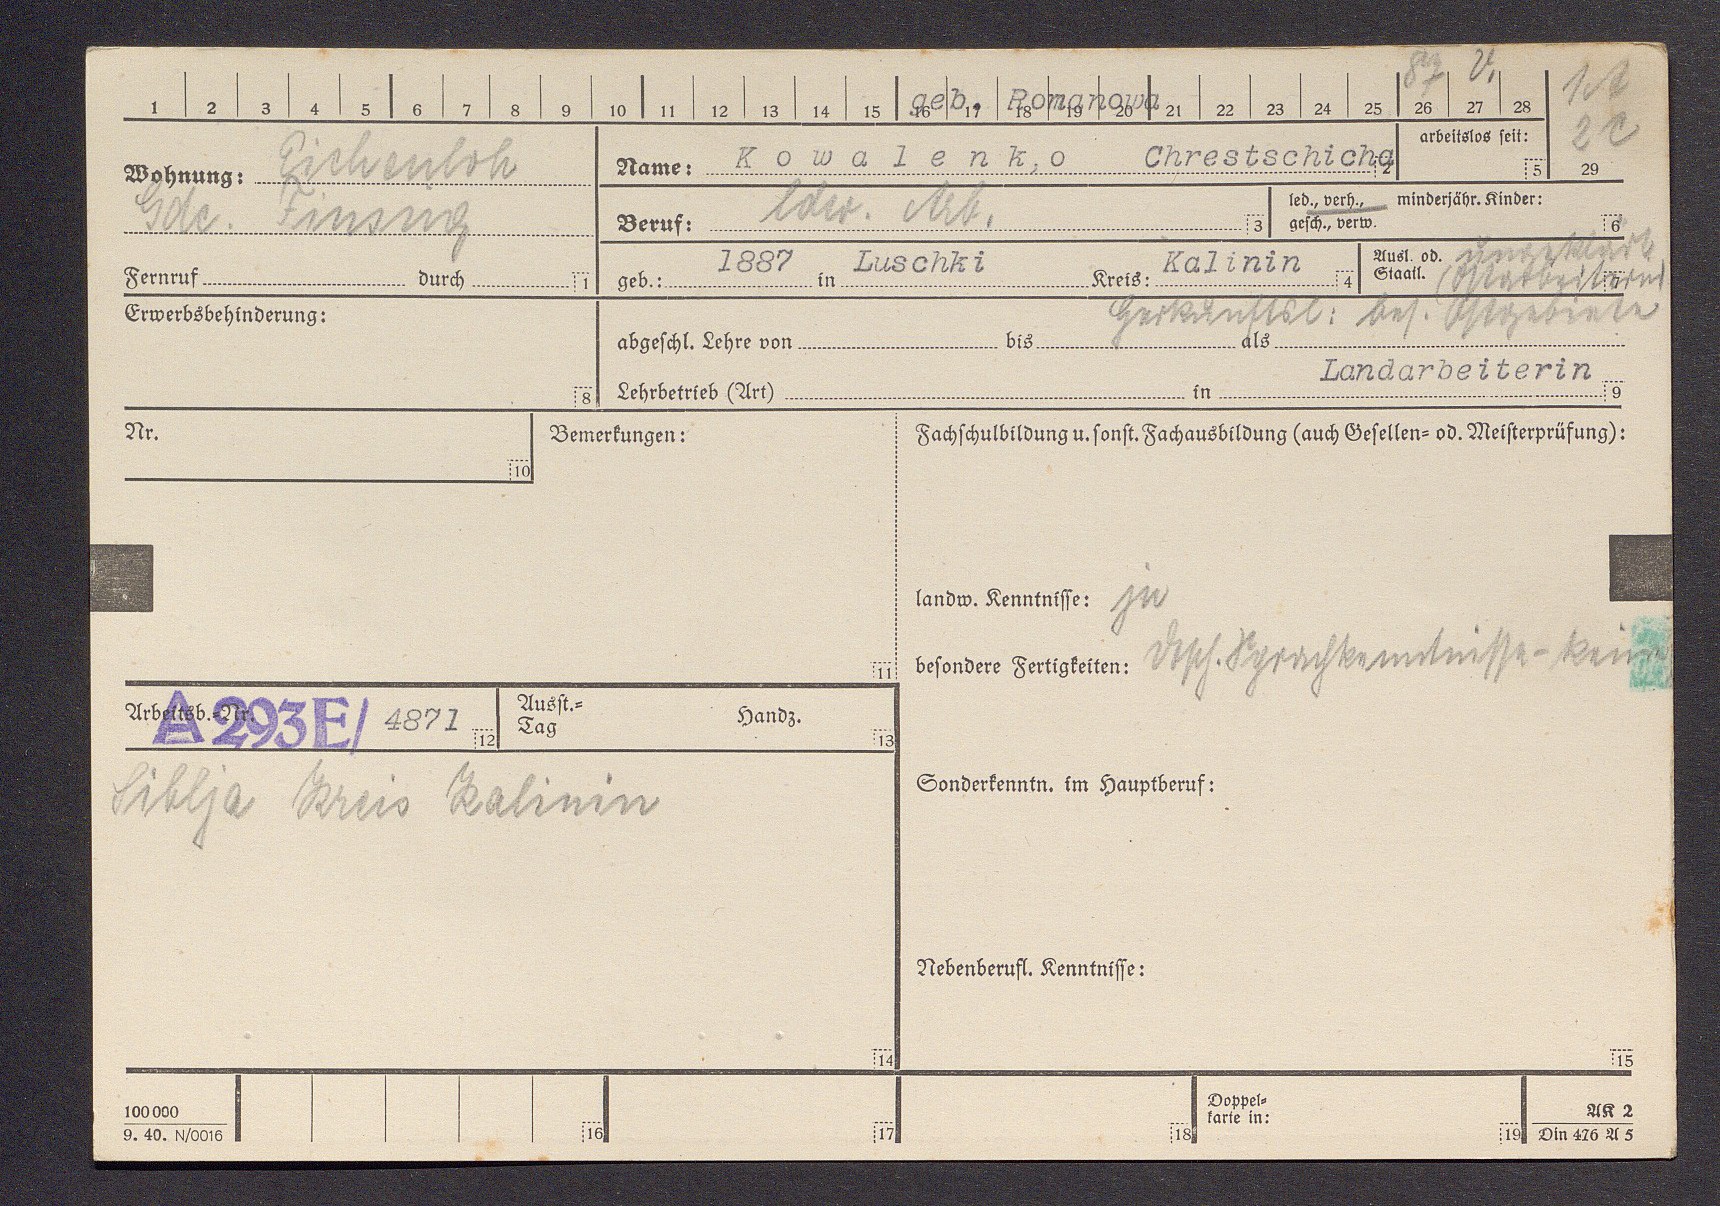 87 V.
1 2 3 4 5 6 7 8 9 10 11 12 13 14 15 16 17 18 19 20 21 22 23 24 25 26 27 28
geb. Romanowa
2 c
29
Wohnung: Eichenloh
Gde. Finsing
Fernruf durch 1
Name: Kowalenko, Chrestschicha 2
arbeitslos seit: 5
Beruf: ldw. Arb. 3
led., verh., minderjähr. Kinder:
gesch., verw. 6
geb.: 1887 in Luschki Kreis: Kalinin 4
Ausl. od. ungeklärt
Staatl. (Ostarbeiterin) 7
Herkunftsl: bes. Ostgebiete
Erwerbsbehinderung:
8
abgeschl. Lehre von bis als
Landarbeiterin
Lehrbetrieb (Art) in 9
Nr.
10
Bemerkungen:
11
Fachschulbildung u. sonst. Fachausbildung (auch Gesellen- od. Meisterprüfung):
landw. Kenntnisse: ja
besondere Fertigkeiten: dtsch. Sprachkenntnisse - keine
Arbeitsb.-Nr. A 293E/ 4871 12
Ausst.-
Tag Handz. 13
Siblja Kreis Kalinin
14
Sonderkenntn. im Hauptberuf:
Nebenberufl. Kenntnisse:
15
100 000
9. 40. N/0016
16
17
18
Doppel-
karte in:
19
AK 2
Din 476 A 5